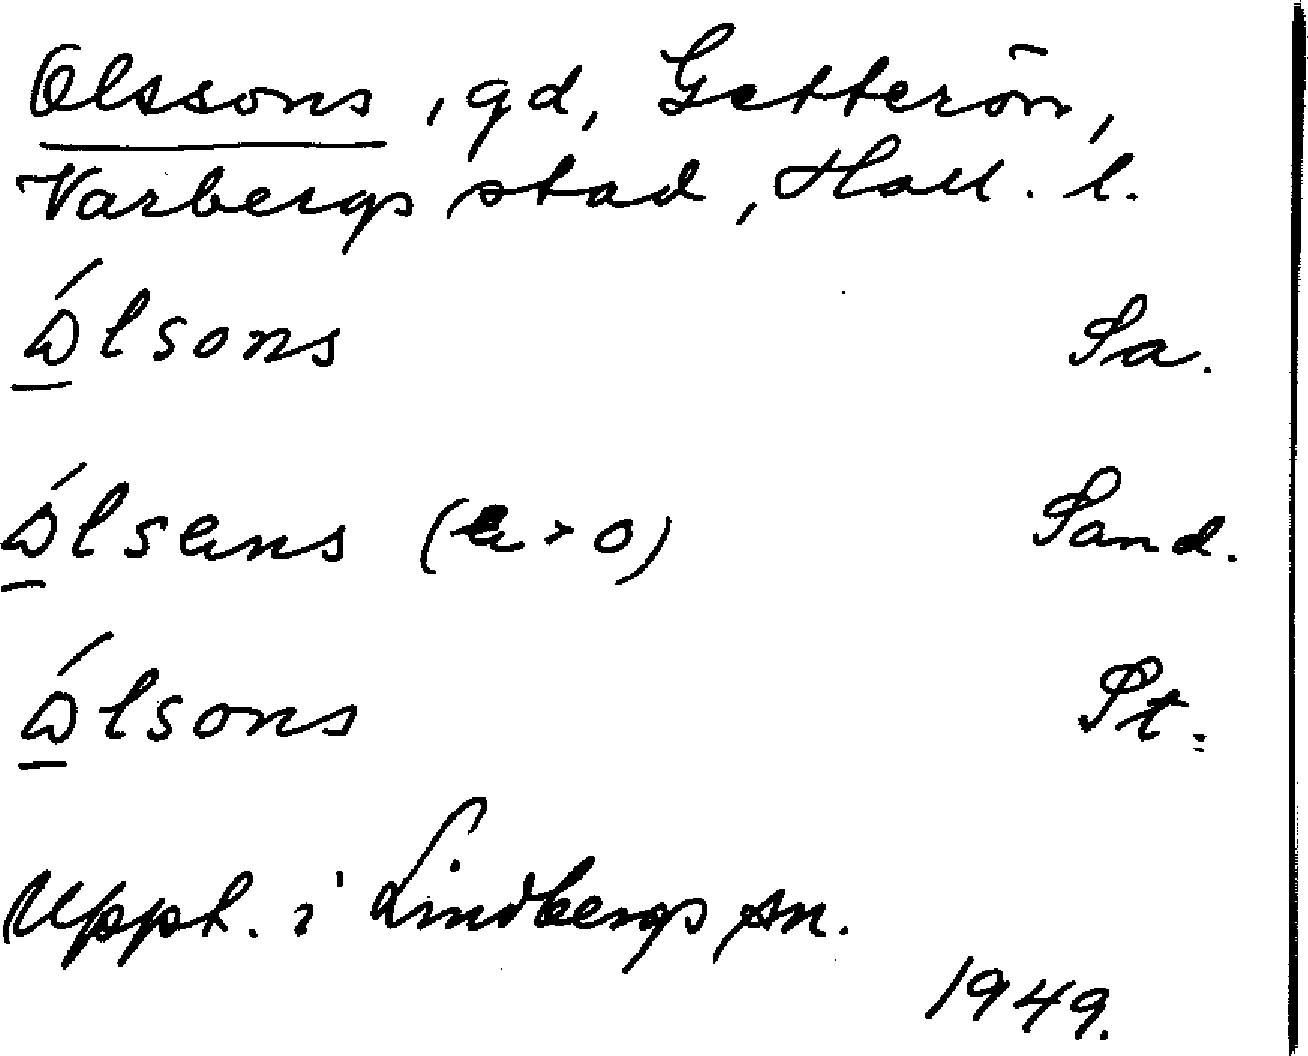 Olssons, gd, Getterön,
Varbergs stad, Hall. l.
Ó̲lsons Sa.
Ó̲lsans (a > o) Sand.
Ó̲lsons St.
Uppt. i Lindbergs sn.
1949.